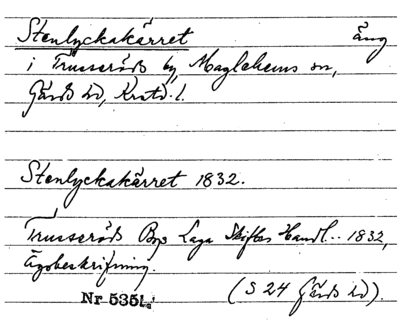 Stenlyckakärret äng
i Trusseröds by, Maglehems sn,
Gärds hd, Krstd. l.
Stenlyckakärret 1832.
Trusseröds Bys Laga Skiftes Handl.. 1832,
Ägobeskrifning.
Nr 5351.
(S 24 Gärds hd).